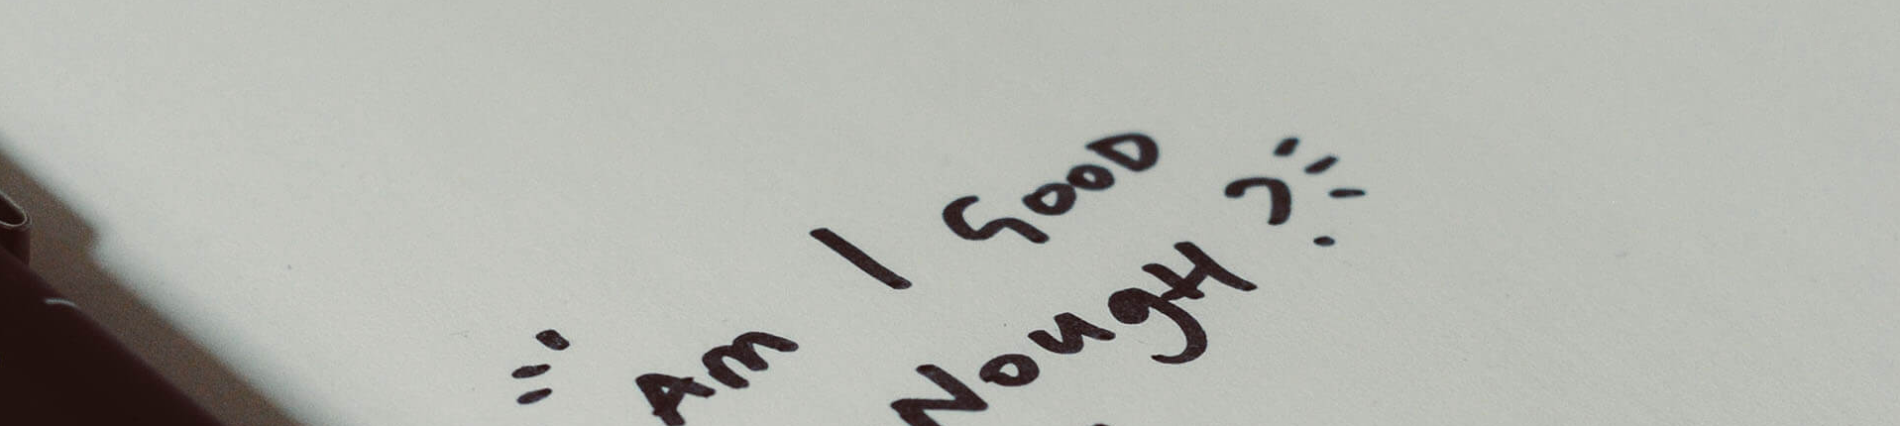 Am I GOOD
NougH ?